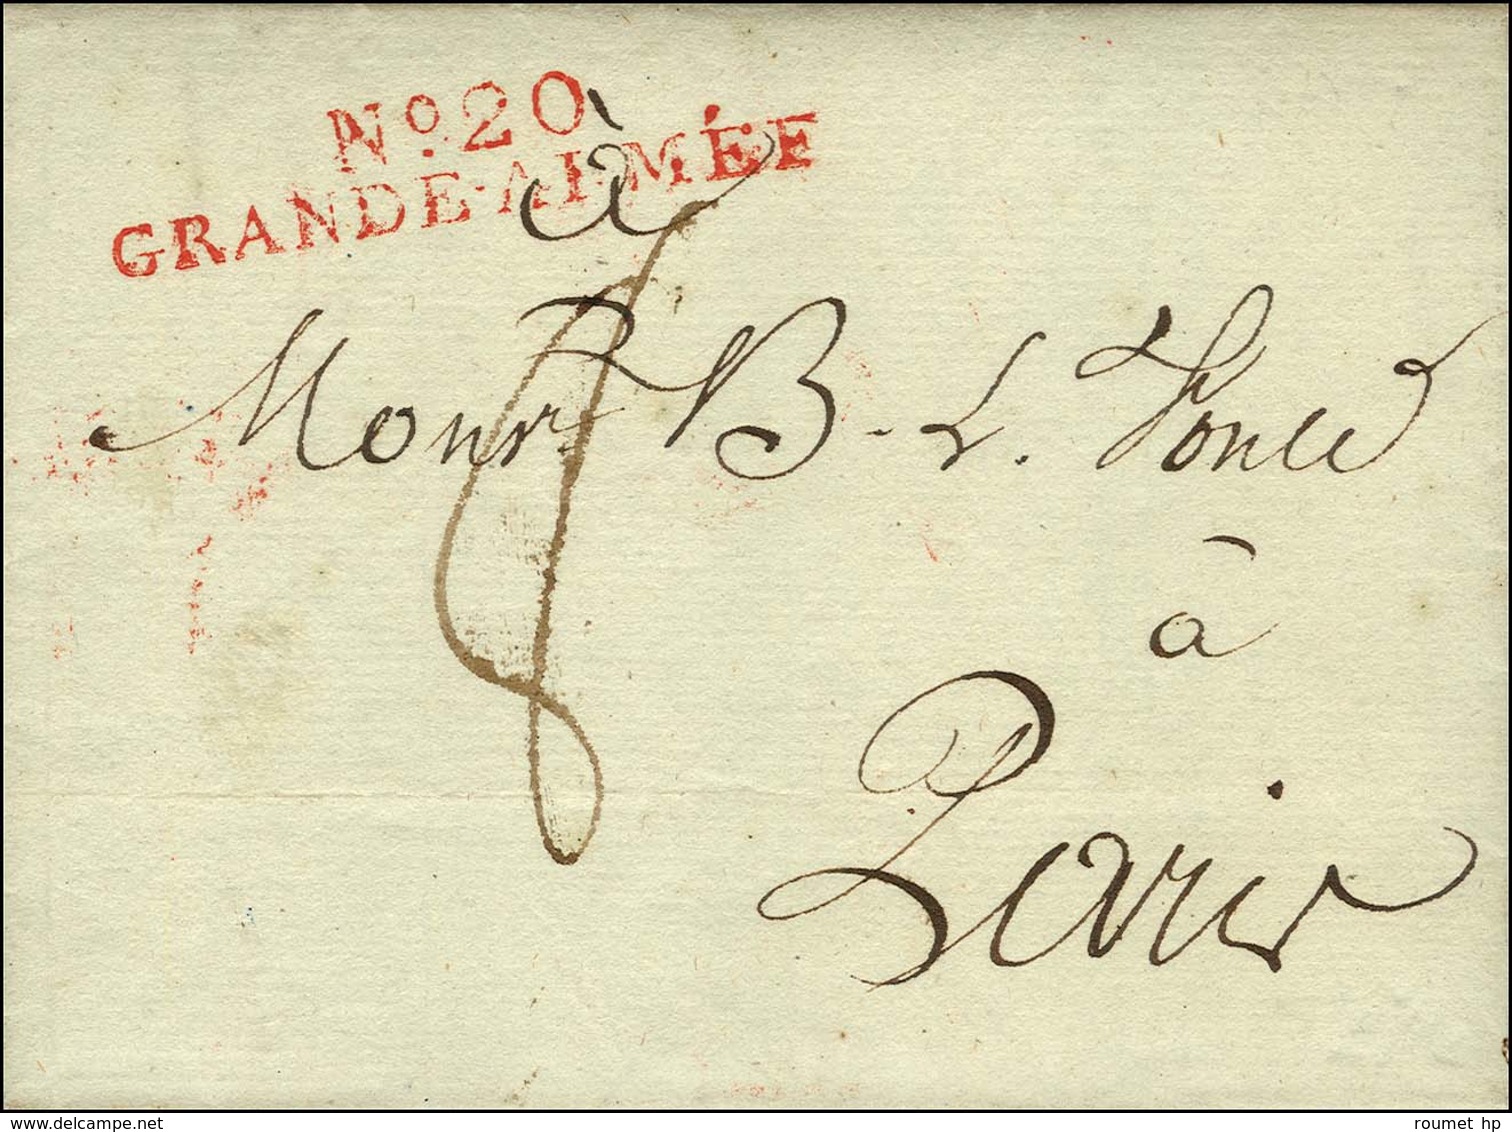 No. 20
GRANDE-ARMÉE
à
Monsr. B. L. Foule
8
à
Paris
delcampe.net
roumet hp